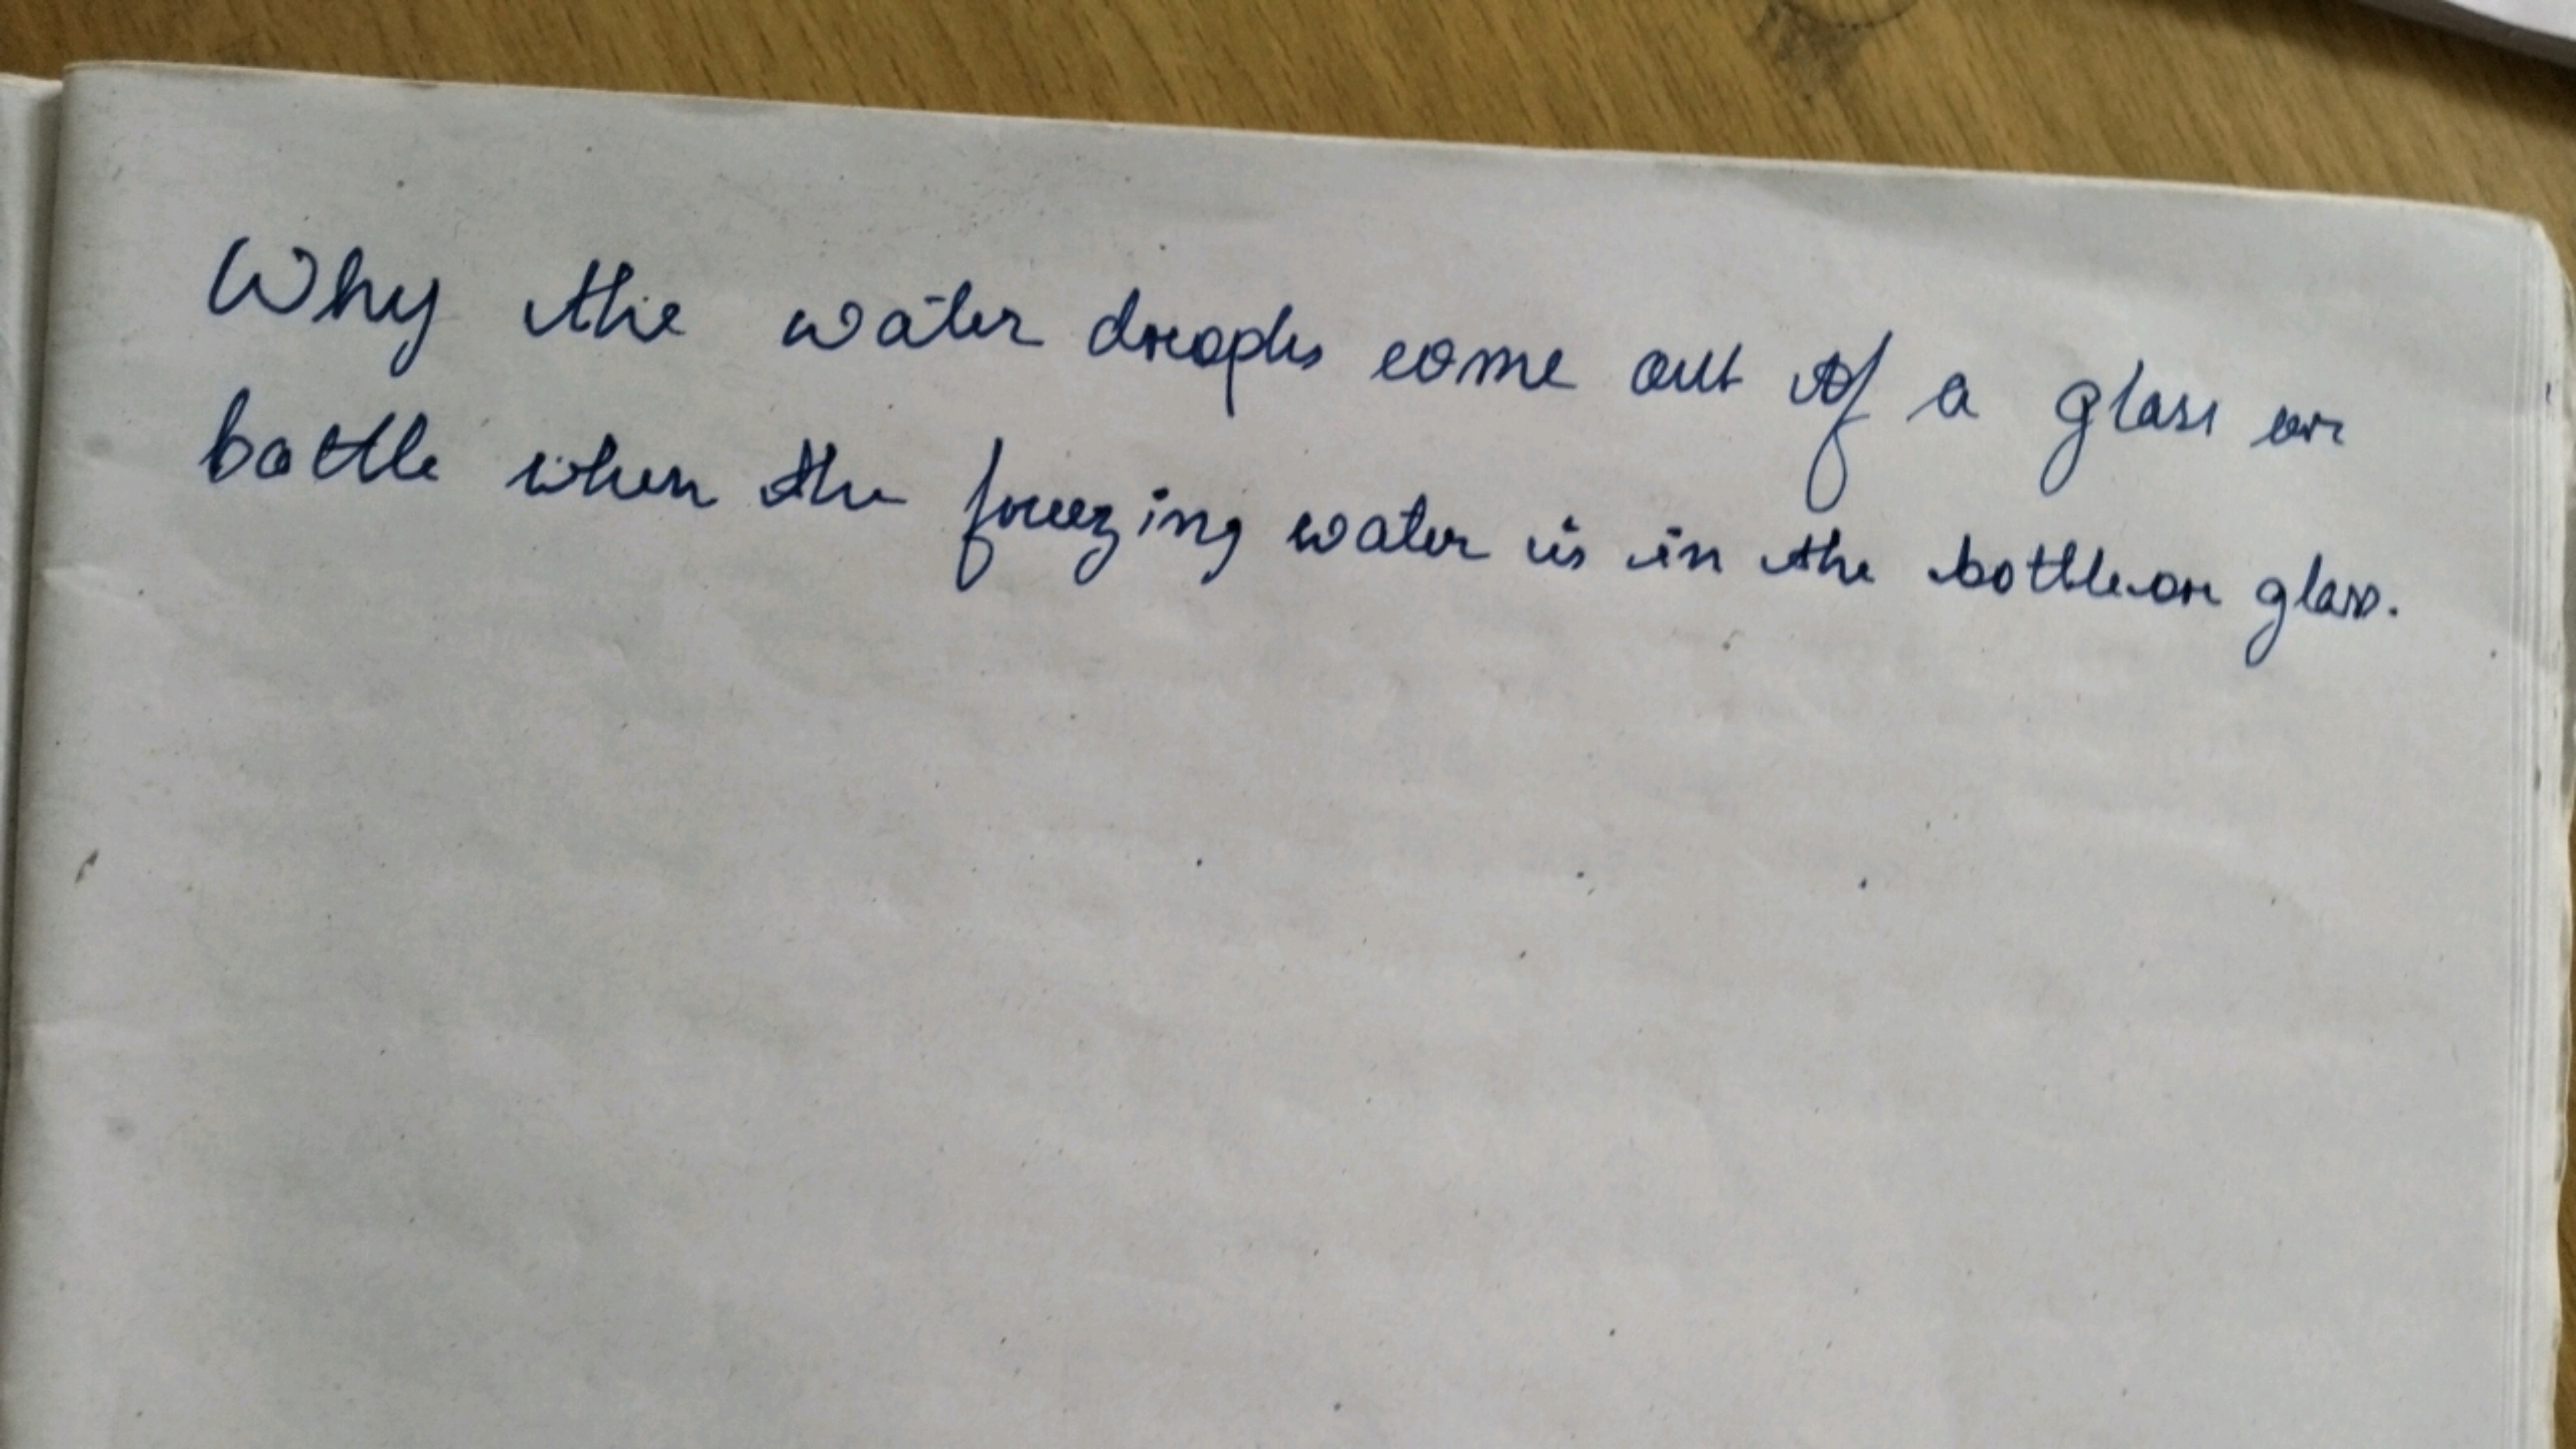 Why the water drops come out of a glass or
bottle when the freezing water is in the bottle or glass.